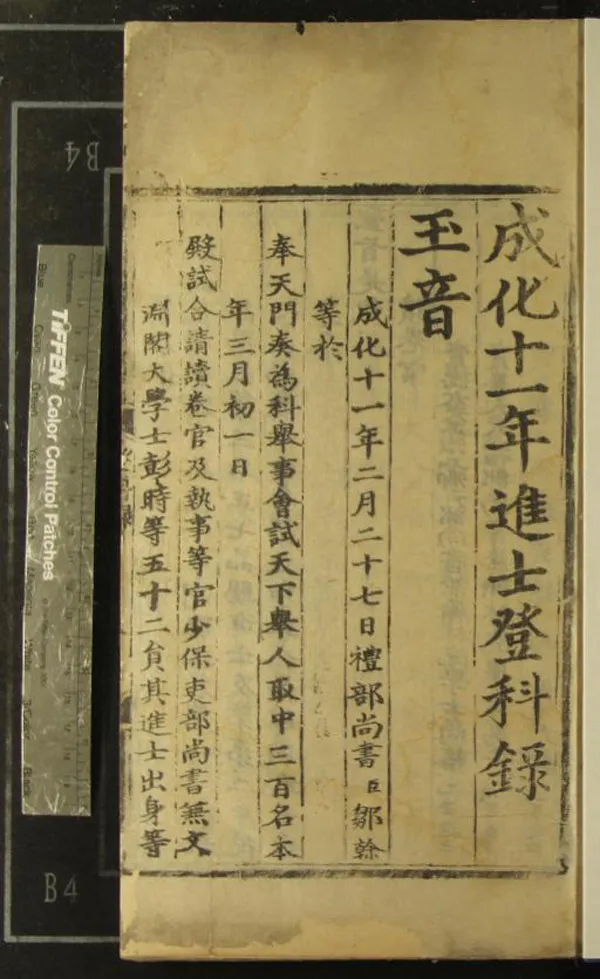 成化十一年進士登科錄
玉音
成化十一年二月二十七日禮部尚書臣鄒榦
等於
奉天門奏為科舉事會試天下舉人取中三百名本
年三月初一日
殿試合請讀卷官及執事等官少保吏部尚書兼文
淵閣大學士彭時等五十二員其進士出身等
TIFFEN Color Control Patches
B4
B4